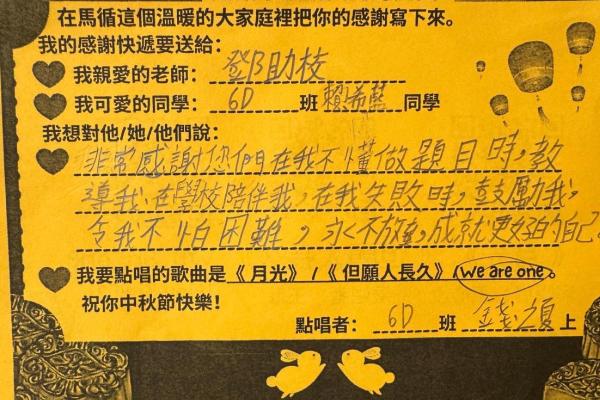 在馬循這個溫暖的大家庭裡把你的感謝寫下來。
我的感謝快遞要送給:
我親愛的老師: 鄧助校
我可愛的同學: 6D 班 賴希 同學
我想對他/她/他們說:
非常感謝您們在我不懂做題目時,教
導我,在學校陪伴我,在我失敗時,鼓勵我,
令我不怕困難,永不放棄,成就更好的自己。
我要點唱的歌曲是《月光》/《但願人長久》/ We are one。
祝你中秋節快樂!
點唱者: 6D 班 錢 上